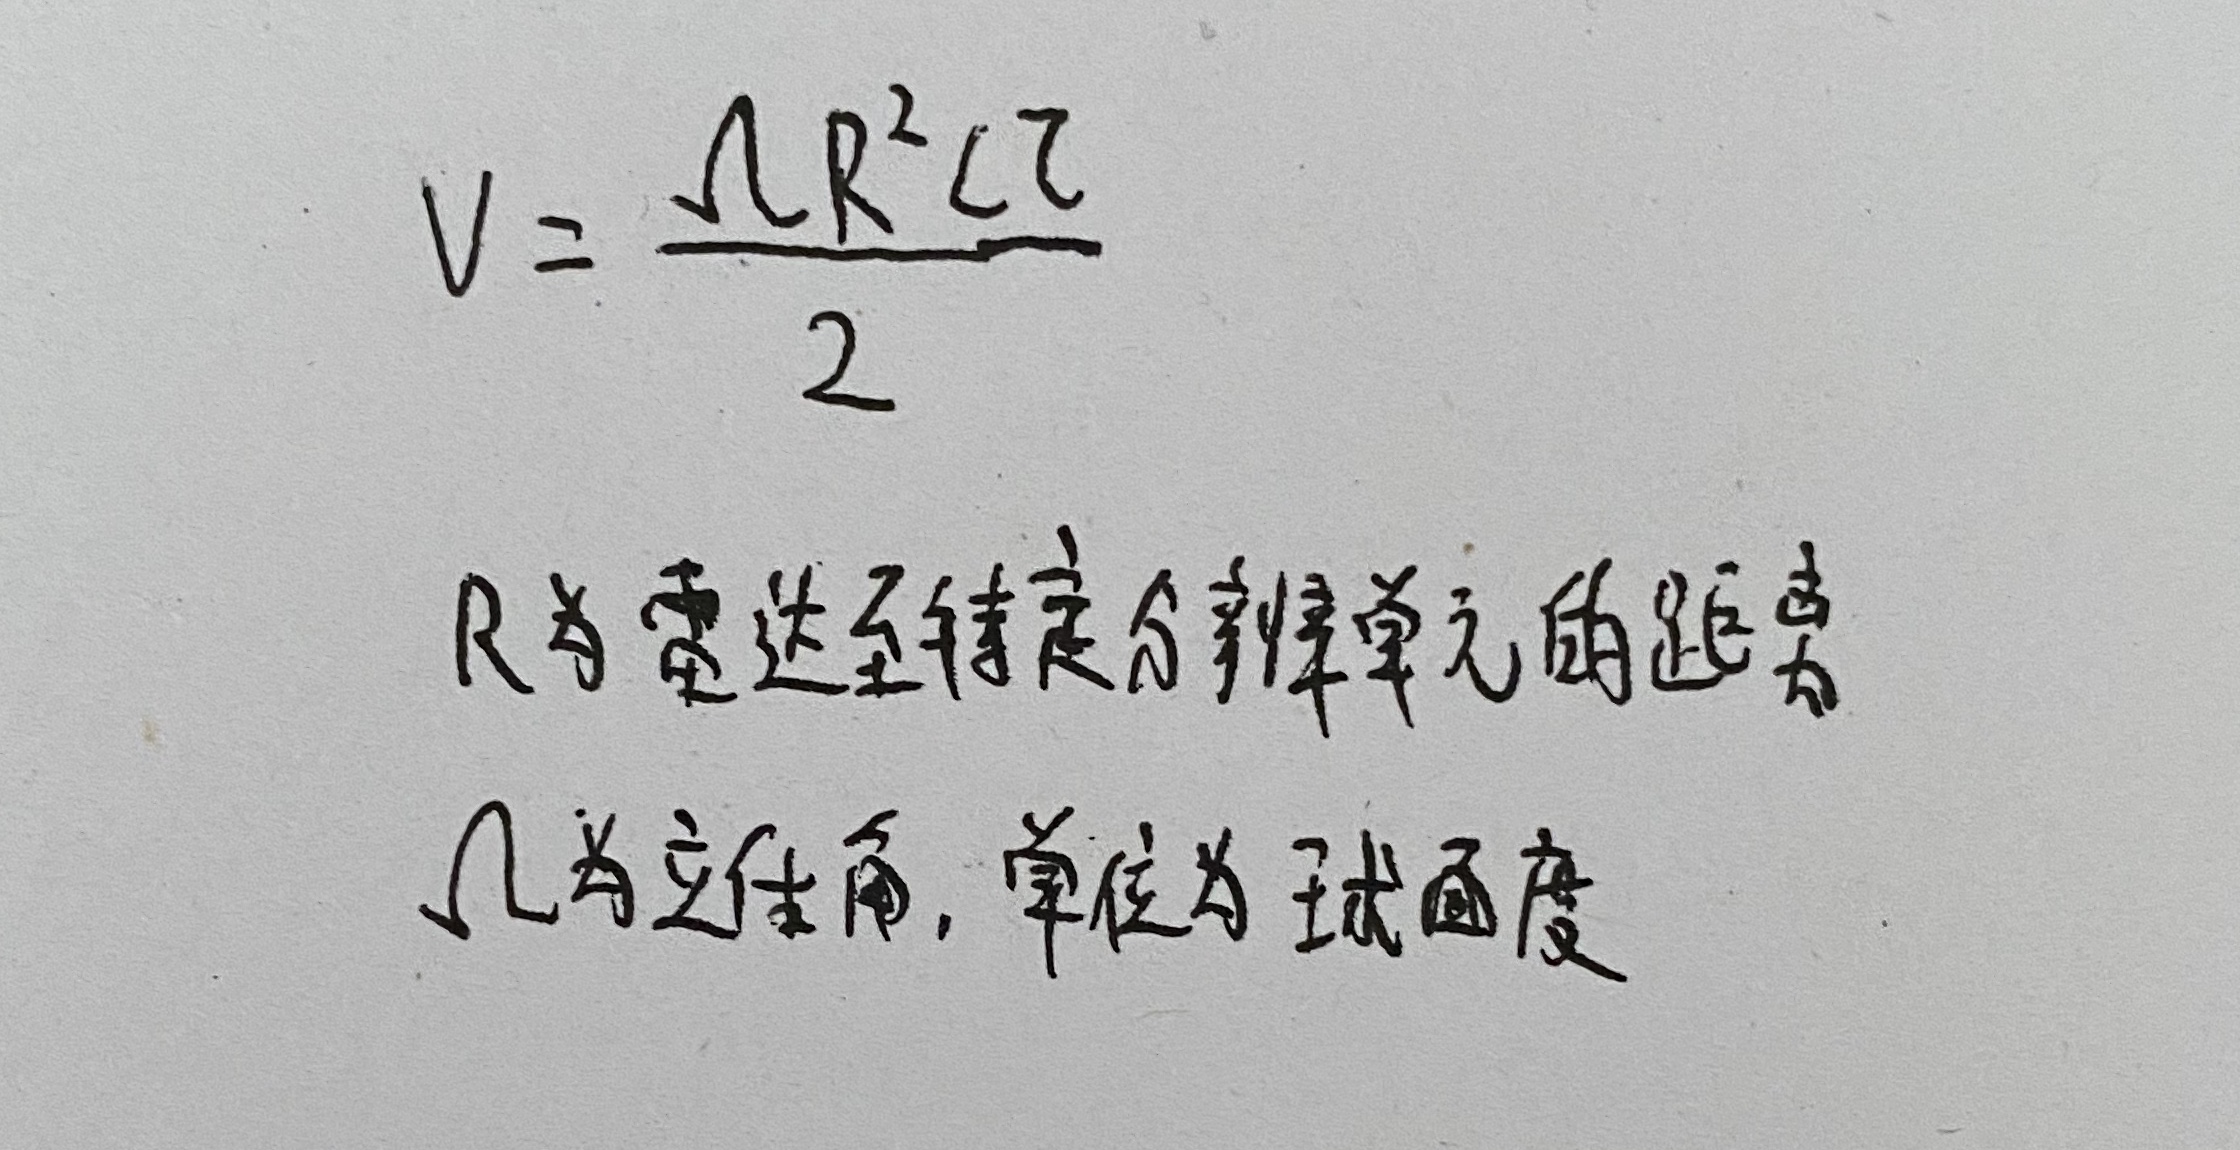 V = ΩR²cτ / 2
R为雷达至特定分辨单元的距离
Ω为立体角，单位为球面度